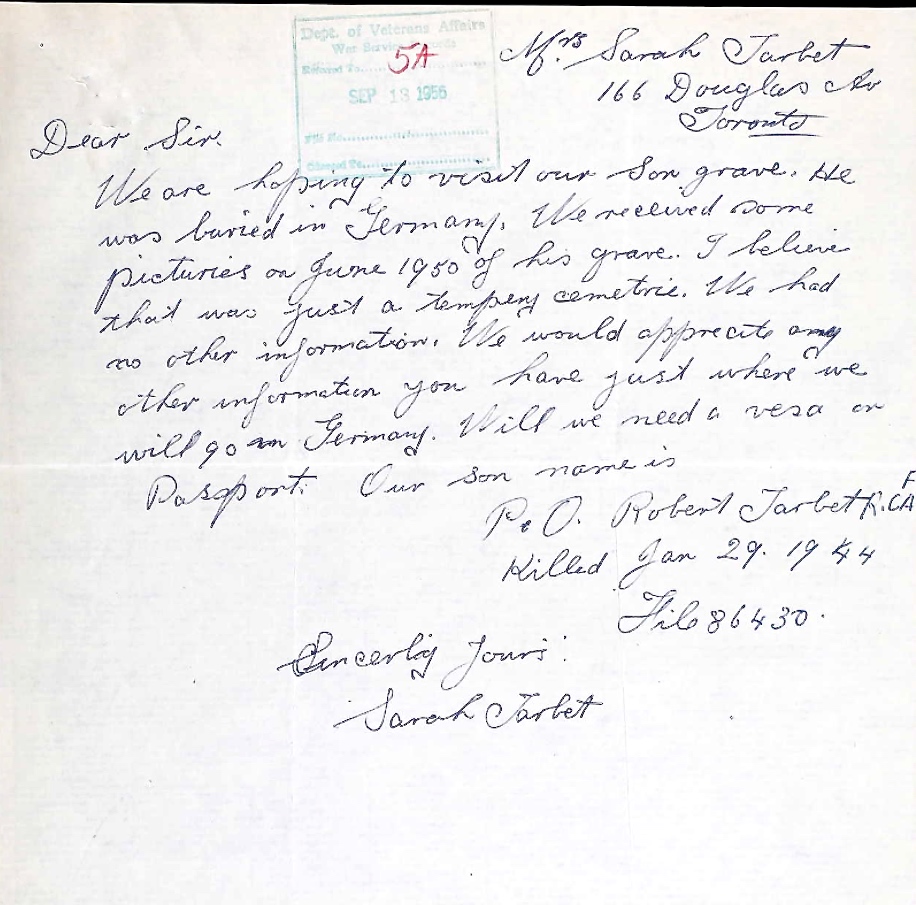 Dept. of Veterans Affairs
War Service Records
Referred To
5A
SEP 13 1956
File No.
Charged To
Mrs Sarah Tarbet
166 Douglas Av
Toronto
Dear Sir.
We are hoping to visit our Son grave. He
was buried in Germany. We received some
picturies on June 1950 of his grave. I believe
that was just a tempery cemetrie. We had
no other information. We would apprecite any
other information you have just where we
will go in Germany. Will we need a vesa or
Passport. Our son name is
P.O. Robert Tarbet R.C.A.F
Killed Jan 29. 1944
File 86430.
Sincerly Yours:
Sarah Tarbet